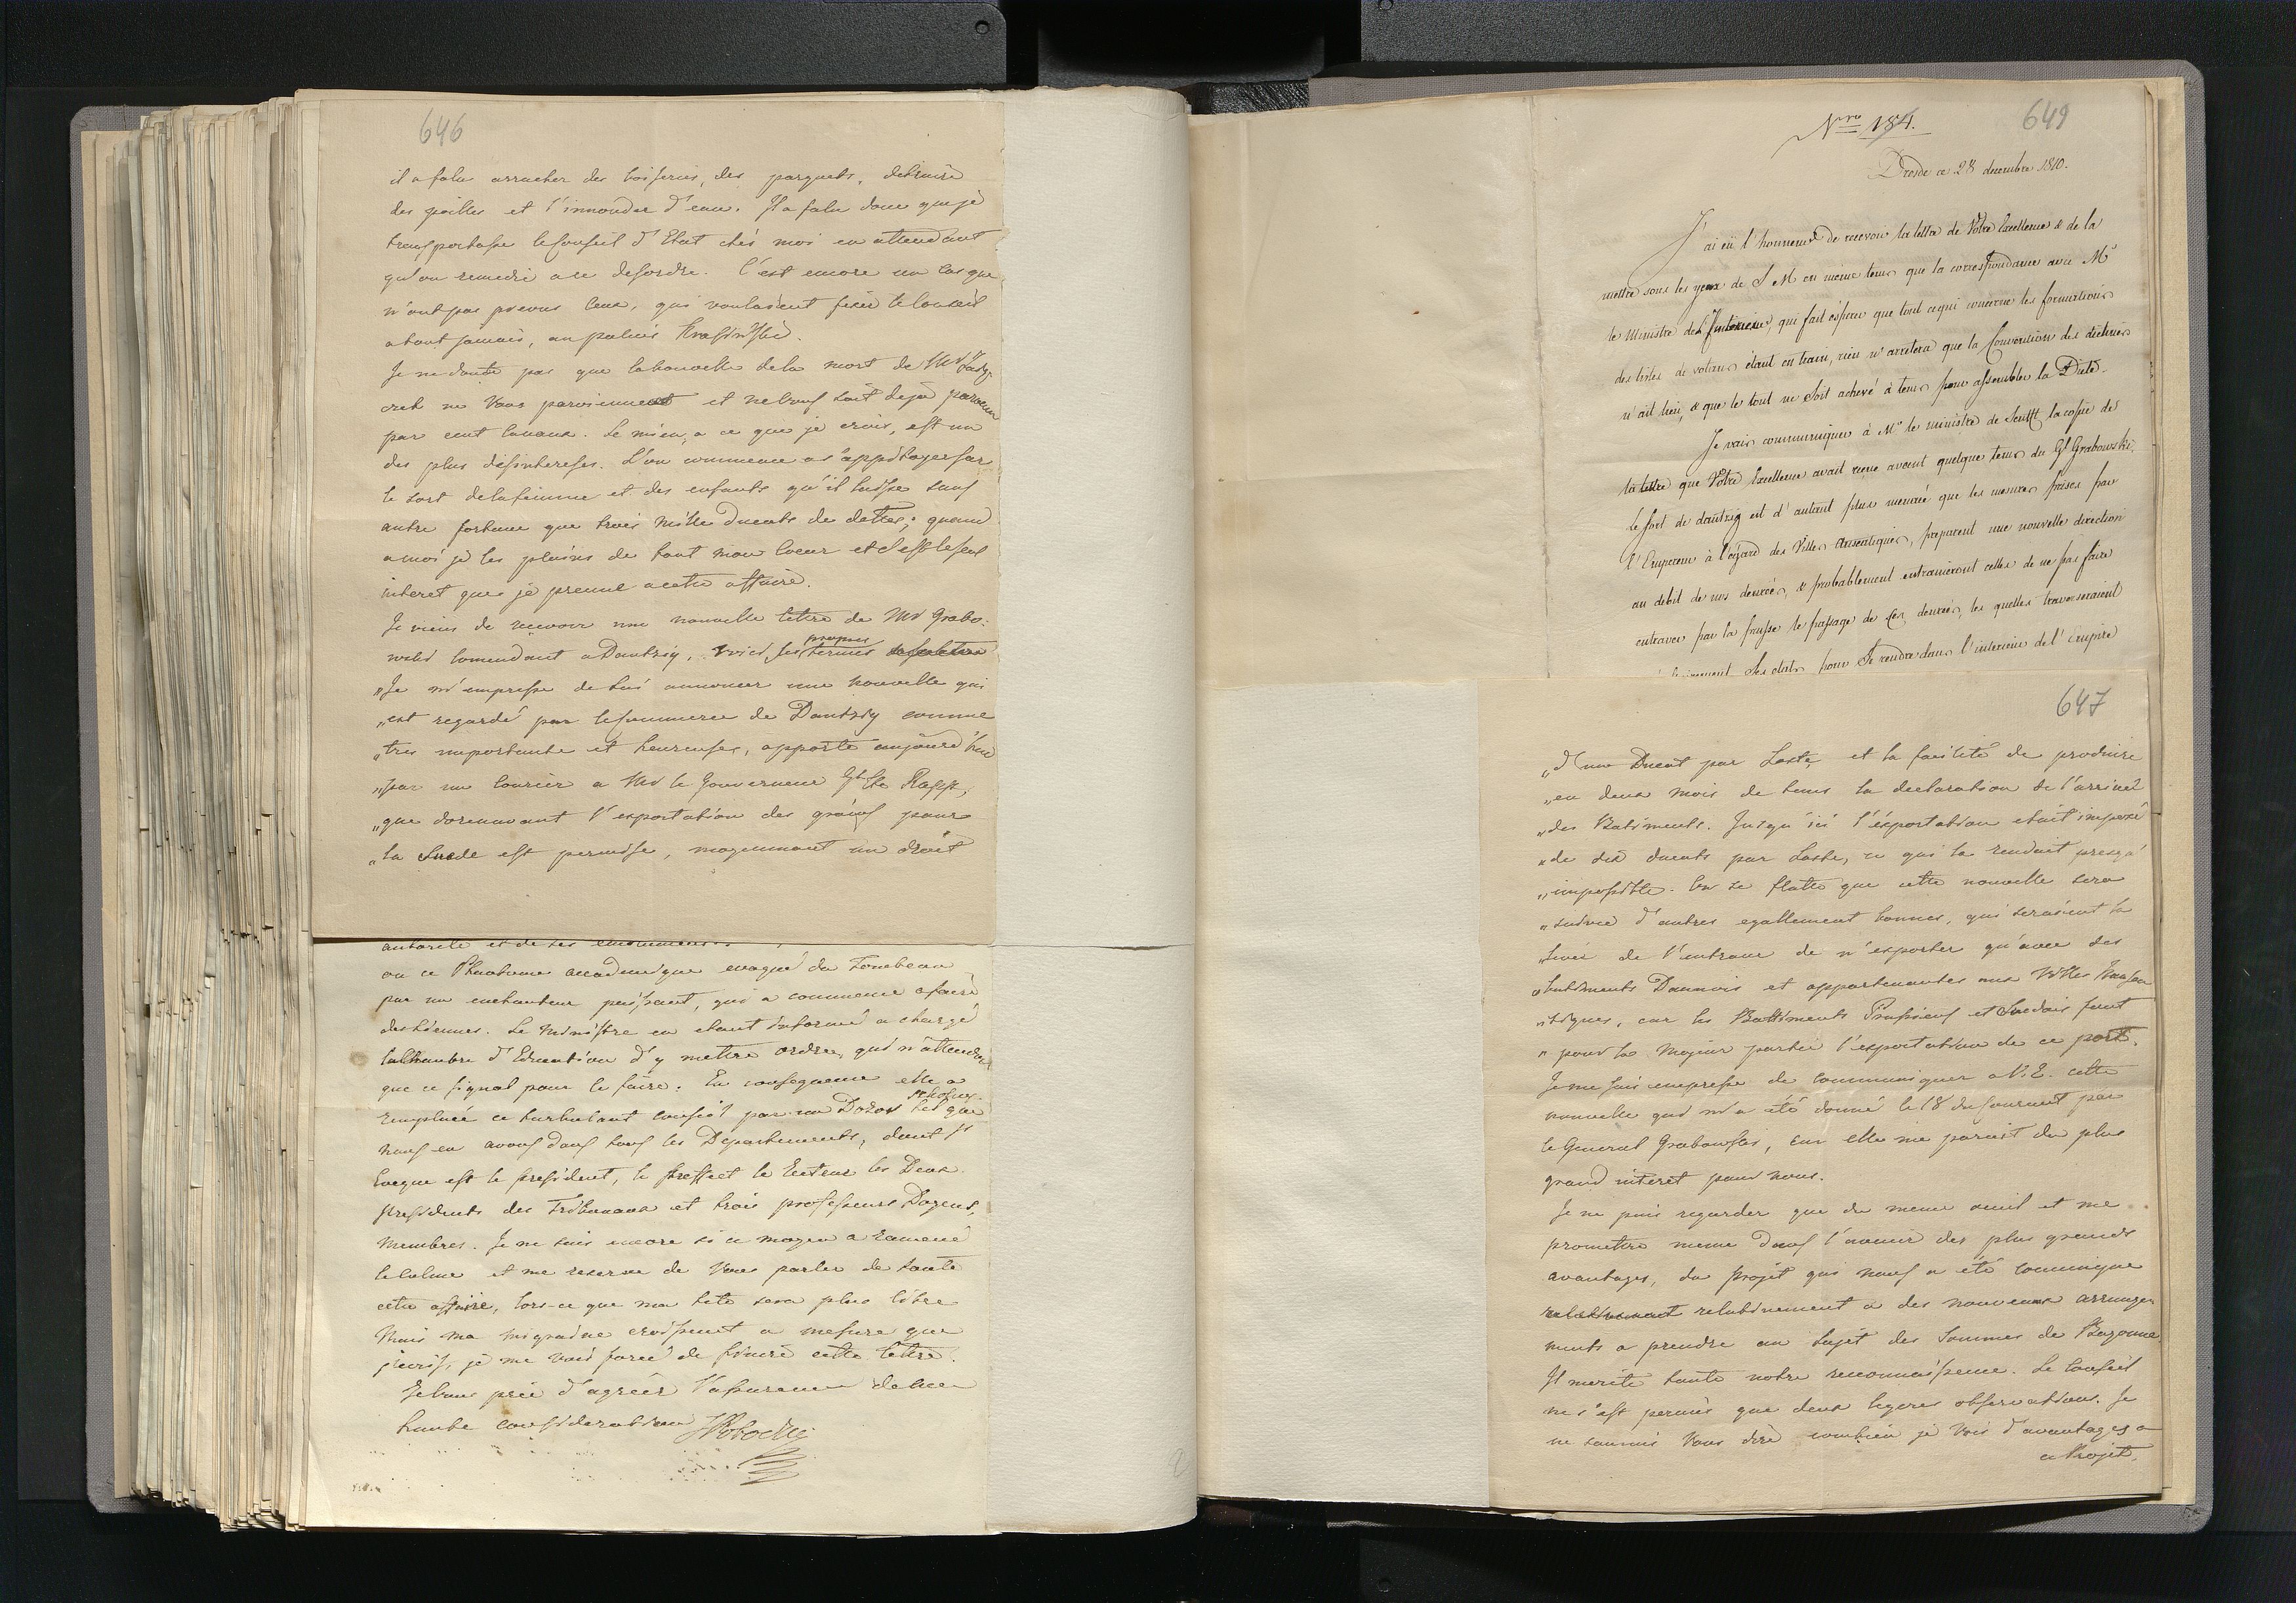 646
il a falu arracher des boiseries, des parquets, detruire
des poilles et l'innonder d'eau. Il a falu donc que je
transportasse le Conseil d'Etat chés moi en attendant
qu'on remedie a ce desordre. C'est encore un cas que
n'ont pas prevus ceux, qui voulaient fixer le Conseil
a tout jamais, au palais Krasinski.
Je ne doute pas que la nouvelle de la mort de Mr
ne Vous parvienne et ne Vous soit deja parvenu
par cent canaux. Le mien, a ce que je crois, est un
des plus desinteresses. L'on commence a s'appitoyer sur
le sort de la femme et des enfants qu'il laisse sans
autre fortune que trois mille Ducats de dettes; quand
a moi je les plains de tout mon Coeur et c'est le seul
interet que je prenne a cette affaire.
Je viens de recevoir une nouvelle lettre de Mr Grabo-
wski Comendant a Dantzig, voici ses propres termes
„Je m'empresse de lui annoncer une nouvelle qui
„est regardé par le Commerce de Dantzig comme
„tres importante et heureuse, apporté aujourd'hui
„par un Courier a Mr le Gouverneur Gl Cte Rapp,
„que dorennavant l'exportation des grains pour
„la Suede est permise, moyennant un droit
autorité et de ses
ou ce Phantome accademique evoqué du Tombeau
par un enchanteur puissant, qui a commencé a faire
des siennes. Le Ministre en etant informé a chargé
la Chambre d'Education d'y mettre ordre, qui n'attendait
que ce signal pour le faire. En consequence elle a
remplacé ce turbulent conseil par un Dozor Szkolny tel que
nous en avons dans tous les Departements, dont l'
Eveque est le president, le Preffect le Recteur les Deux
Presidents des Tribunaux et trois professeurs Doyens,
membres. Je ne sais encore si ce moyen a ramené
le calme et me reserve de Vous parler de toute
cette affaire, lors-ce que ma tete sera plus libre
Mais ma migraine croissant a mesure que
j'ecris, je me vois forcé de finire cette lettre.
Je Vous prie d'agréer l'assurance de ma
haute consideration SPotocki
649
Nro 184.
Dresde ce 28 decembre 1810.
J'ai eü l'honneur de recevoir la lettre de Votre Excellence & de la
mettre sous les yeux de S M en même tems que la correspondance avec Mr
le Ministre de l'Intérieur, qui fait espérer que tout ce qui concerne les formations
des listes de votans étant en train, rien n'arrêtera que la Convocation des diétines
n'ait lieu, & que le tout ne soit achevé à tems pour assembler la Diète.
Je vais communiquer à Mr le ministre de Senfft la copie de
la lettre que Votre Excellence avait reçue avant quelque tems du Gl Grabowski.
Le sort de dantzig est d'autant plus menacé que les mesures prises par
l'Empereur à l'égard des Villes Anséatiques, preparent une nouvelle direction
au débit de nos denrées, & probablement entraineront celles de ne pas faire
entraver par la prusse le passage de ces denrées, les quelles traverseraient
Ses états pour se rendre dans l'interieur de l'Empire
647
„d'un Ducat par Laste, et la facilité de produire
„en deux mois de tems la declaration de l'arriveé
„des Batiments. Jusqu'ici l'exportation etait imposé
„de dix ducats par Laste, ce qui la rendait presqu'
„impossible. On se flatte que cette nouvelle sera
„suivie d'autres egallement bonnes, qui seraient la
„levée de l'entrave de n'exporter qu'avec des
„batiments Dannois et appartenantes aux Villes Hansea
„tiques, car les Battiments Prussiens et Suedois font
„pour la majeur partie l'exportation de ce port.
Je me suis empressé de communiquer a V.E. cette
nouvelle qui m'a été donné le 18 du Courrant par
le General Grabowski, car elle me parait du plus
grand interet pour nous.
Je ne puis regarder que du meme oeuil et me
promettre meme dans l'avenir des plus grands
avantages, du projet qui nous a été communiqué
relativement relativement a des nouveaux arrange
ments a prendre au sujet des Sommes de Bayonne.
Il merite toute notre reconnaissence. Le Conseil
ne s'est permis que deux legeres observations. Je
ne saurais Vous dire combien je Vois d'avantages a
ce Projet.